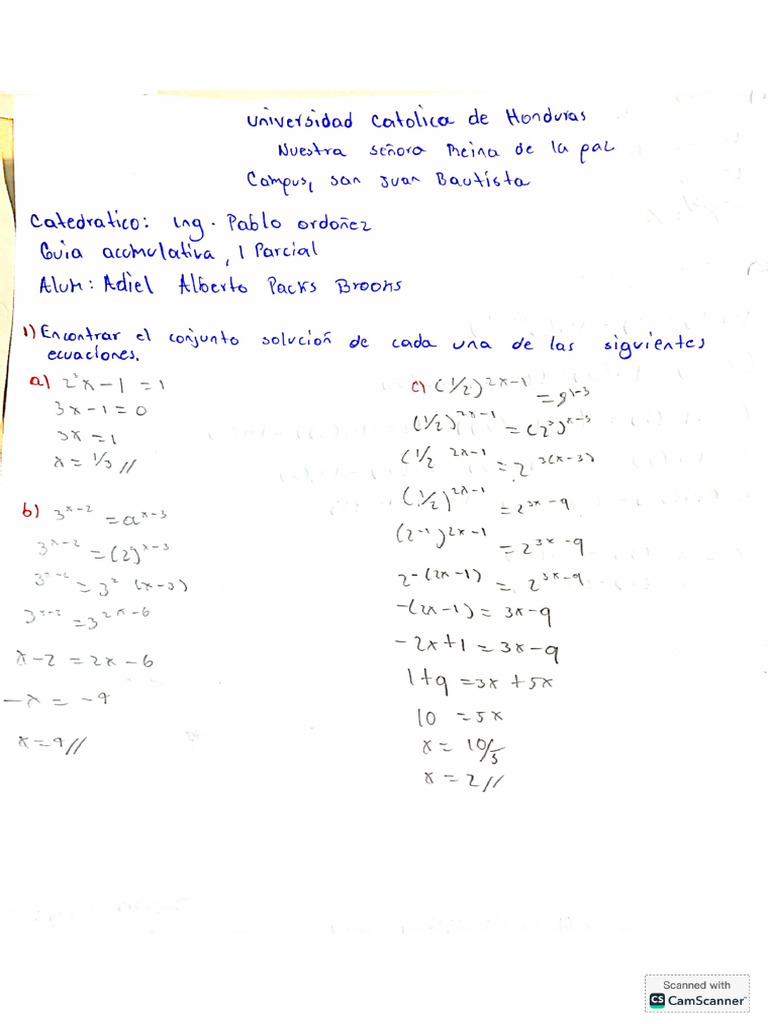 Universidad Catolica de Honduras
Nuestra señora Reina de la paz
Campus, san Juan Bautista
Catedratico: Ing. Pablo ordoñez
Guia acomulativa, 1 Parcial
Alum: Adiel Alberto Packs Brooks
1) Encontrar el conjunto solución de cada una de las siguientes
ecuaciones.
a) 2³x - 1 = 1
3x - 1 = 0
3x = 1
x = 1/3 //
b) 3^x-2 = a^x-3
3^x-2 = (2)^x-3
3^x-2 = 3^2 (x-3)
3^x-2 = 3^2x-6
x - 2 = 2x - 6
-x = -9
x = 9 //
c) (1/2)^2x-1 = 8^x-3
(1/2)^2x-1 = (2³)^x-3
(1/2 ^2x-1 = 2^3(x-3)
(1/2)^2x-1 = 2^3x-9
(2^-1)^2x-1 = 2^3x-9
2^-(2x-1) = 2^3x-9
-(2x-1) = 3x-9
-2x+1 = 3x-9
1+9 = 3x+5x
10 = 5x
x = 10/5
x = 2 //
Scanned with
CS CamScanner